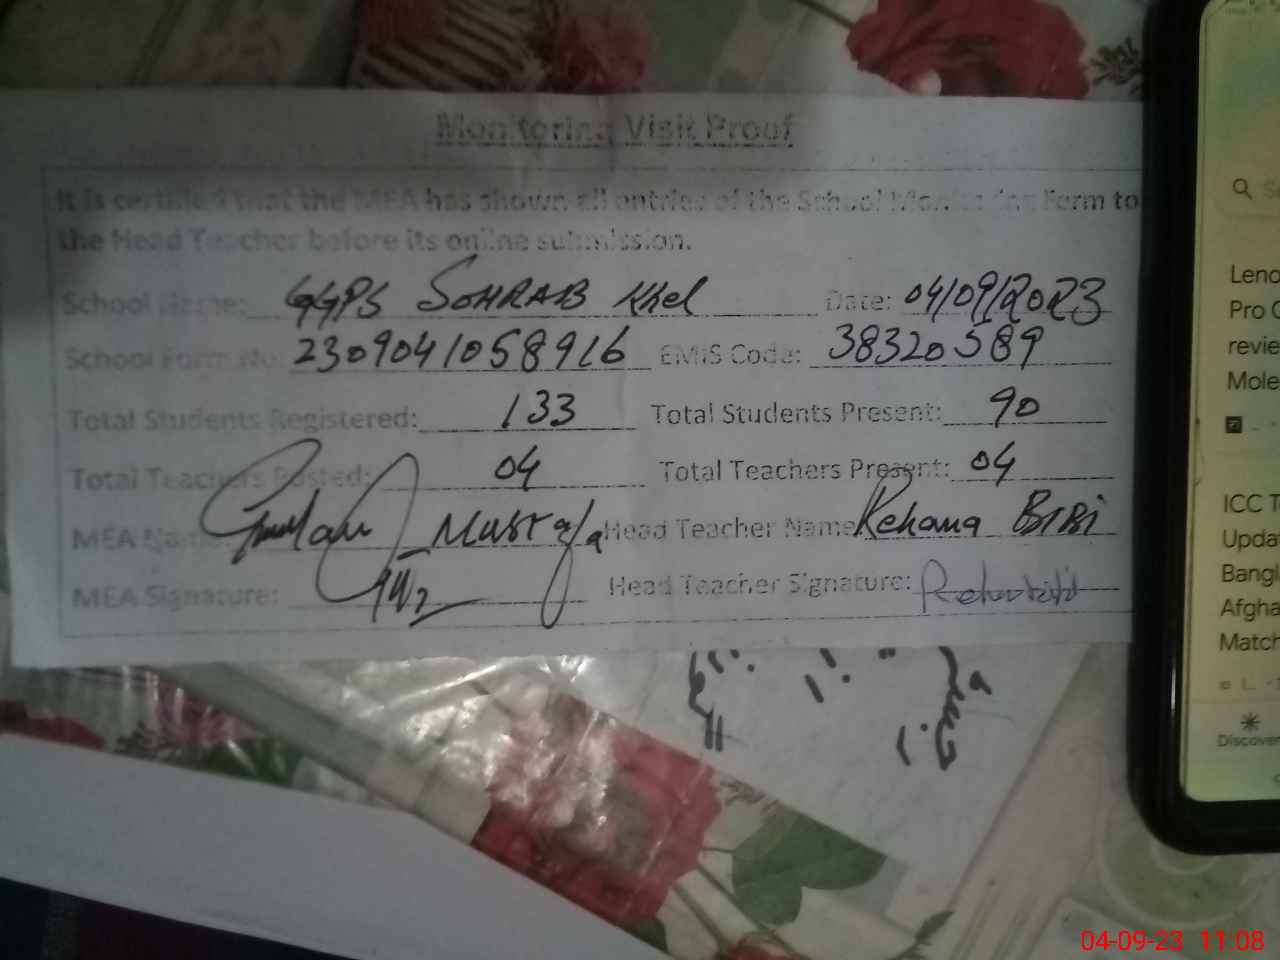 Monitoring Visit Proof
It is certified that the MEA has shown all entries of the School Monitoring Form to
the Head Teacher before its online submission.
School Name: GGPS SOHRAB Khel Date: 04/09/2023
School Form No: 2309041058916 EMIS Code: 38320589
Total Students Registered: 133 Total Students Present: 90
Total Teachers Posted: 04 Total Teachers Present: 04
MEA Name: Ghulam Mustafa Head Teacher Name Rehana BIBI
MEA Signature: Head Teacher Signature:
Leno
Pro C
revie
Mole
ICC T
Upda
Bangl
Afgha
Match
Discover
04-09-23 11:08